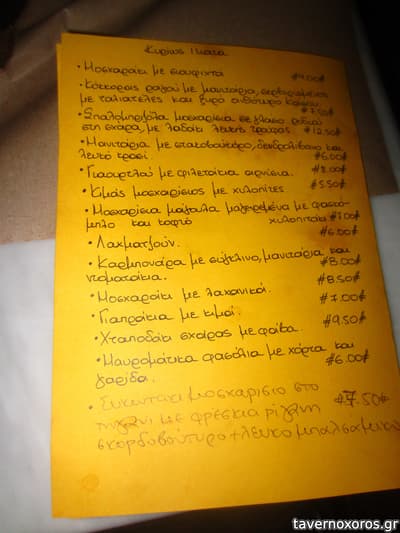 Κυρίως Πιάτα
• Μοσχαράκι με σιουφιχτά #9.00#
• Κόκκορας ραγού με μανιτάρια, σερβιρισμένος
με ταλιατέλες και ξυρό ανθότυρο
#7.50#
• Σπαλομπριζόλα μοσχαρίσια σε γλάσο ροδιού
στη σχάρα, με λαδάκι λευκής τρούφας #12.50#
• Μανιτάρια με στακοβούτυρο, δενδρολίβανο και
λευκό κρασί #6.00#
• Γιαουρτλού με φιλετάκια αρνίσια. #8.00#
• Κιμάς μοσχαρίσιος με χυλοπίτες #5.50#
• Μοσχαρίσια μάγουλα μαγειρεμένα με
και χυλοπιτάκι #7.00#
• Λαχματζούν. #6.00#
• Καρμπονάρα με σύγλινο, μανιτάρια και
ντοματάκια. #8.00#
• Μοσχαράκι με λαχανικά. #8.50#
• Γιαπράκια με κιμά. #7.00#
• Χταπόδι σχάρας με φάβα. #9.50#
• Μαυρομάτικα φασόλια με χόρτα και
γαρίδα. #6.00#
• Συκωτάκι μοσχαρίσιο στο
τηγάνι με φρέσκια ρίγανη #7.50#
σκορδοβούτυρο + λευκό μπαλσάμικο
tavernoxoros.gr